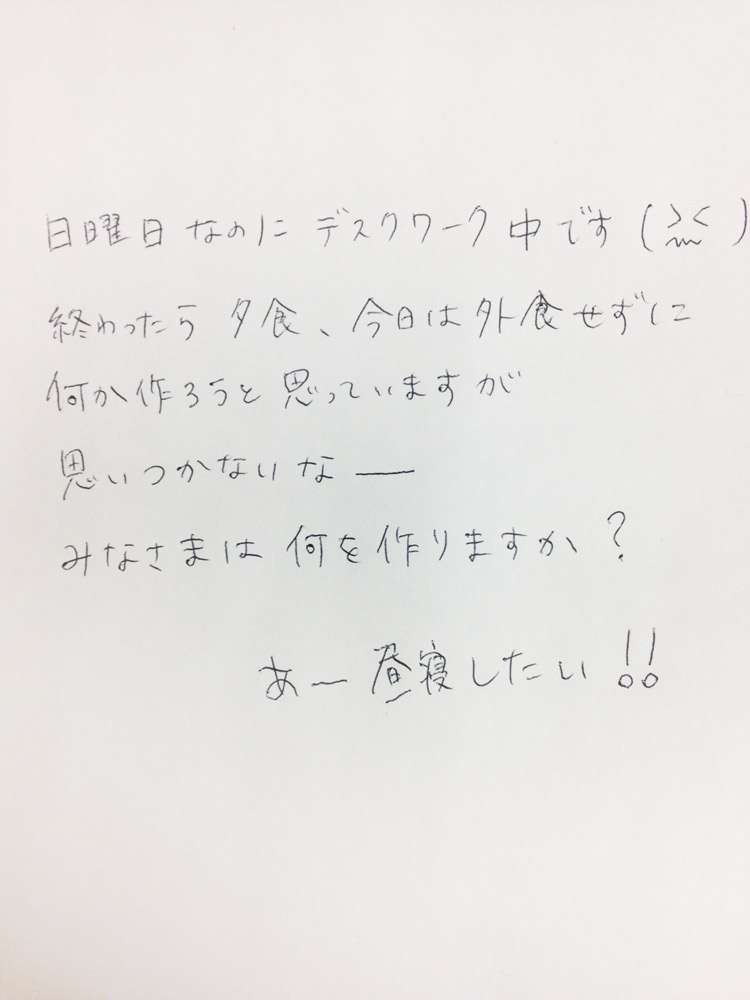 日曜日なのにデスクワーク中です(><)
終わったら夕食、今日は外食せずに
何か作ろうと思っていますが
思いつかないなー
みなさまは何を作りますか?
あー昼寝したい!!